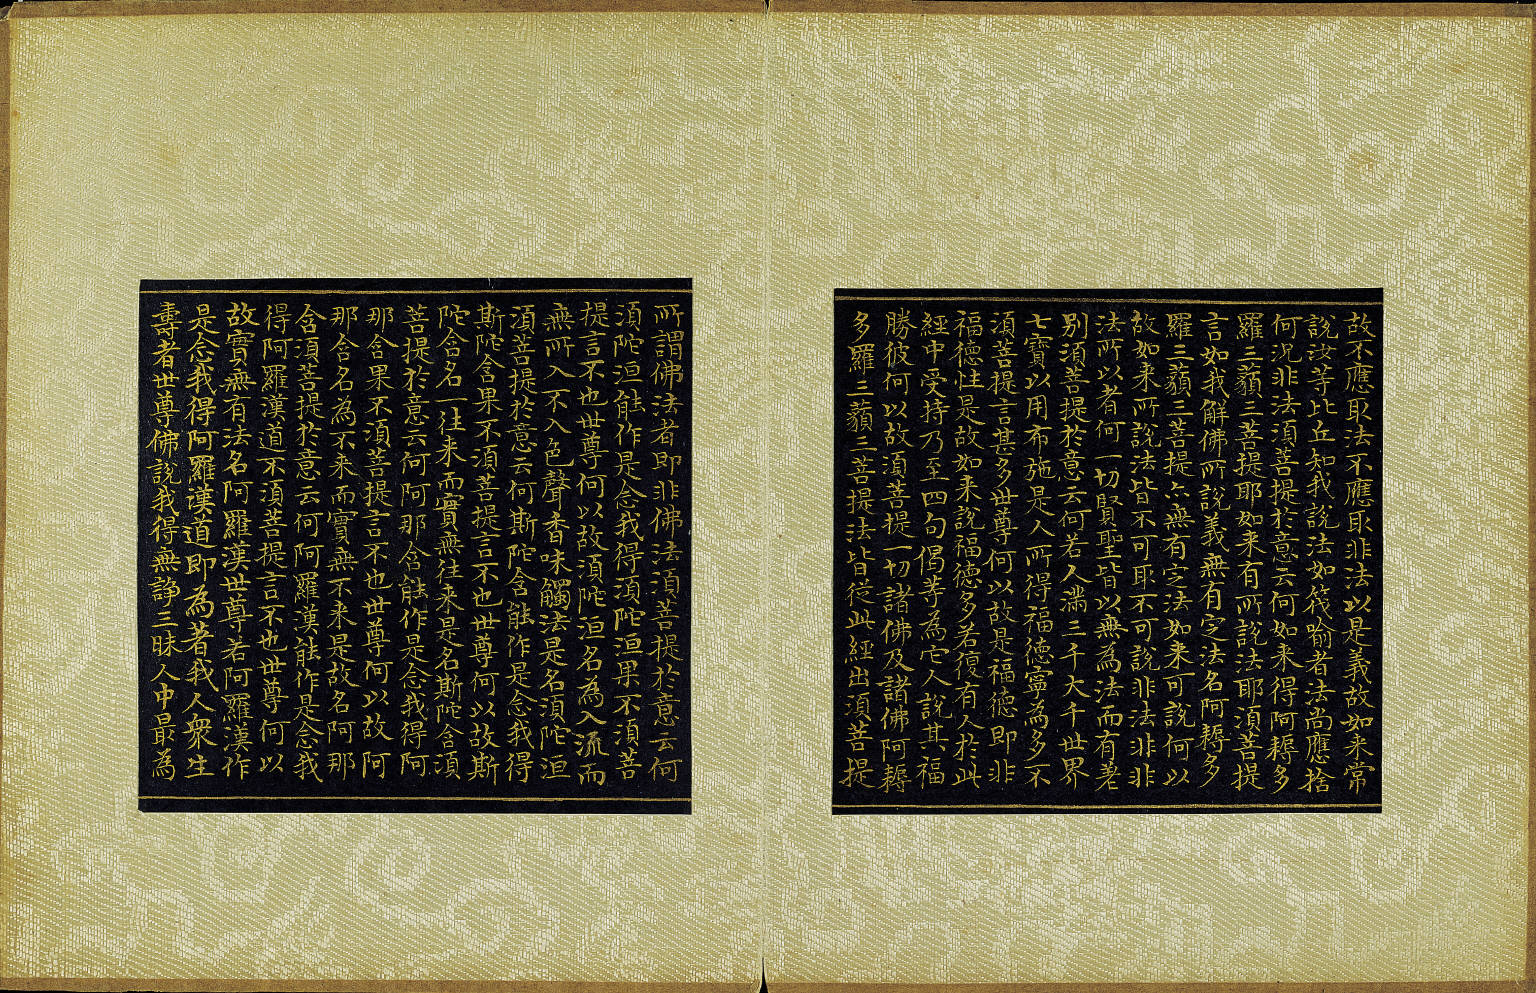 故不應取法不應取非法以是義故如来常
說汝等比丘知我說法如筏喻者法尚應捨
何況非法須菩提於意云何如来得阿耨多
羅三藐三菩提耶如来有所說法耶須菩提
言如我解佛所說義無有定法名阿耨多
羅三藐三菩提亦無有定法如来可說何以
故如来所說法皆不可取不可說非法非非
法所以者何一切賢聖皆以無為法而有差
别須菩提於意云何若人滿三千大千世界
七寶以用布施是人所得福德寧為多不
須菩提言甚多世尊何以故是福德即非
福德性是故如来說福德多若復有人於此
經中受持乃至四句偈等為它人說其福
勝彼何以故須菩提一切諸佛及諸佛阿耨
多羅三藐三菩提法皆從此經出須菩提
所謂佛法者即非佛法須菩提於意云何
須陀洹能作是念我得須陀洹果不須菩
提言不也世尊何以故須陀洹名為入流而
無所入不入色聲香味觸法是名須陀洹
須菩提於意云何斯陀含能作是念我得
斯陀含果不須菩提言不也世尊何以故斯
陀含名一往来而實無往来是名斯陀含須
菩提於意云何阿那含能作是念我得阿
那含果不須菩提言不也世尊何以故阿
那含名為不来而實無不来是故名阿那
含須菩提於意云何阿羅漢能作是念我
得阿羅漢道不須菩提言不也世尊何以
故實無有法名阿羅漢世尊若阿羅漢作
是念我得阿羅漢道即為著我人衆生
壽者世尊佛說我得無諍三昧人中最為